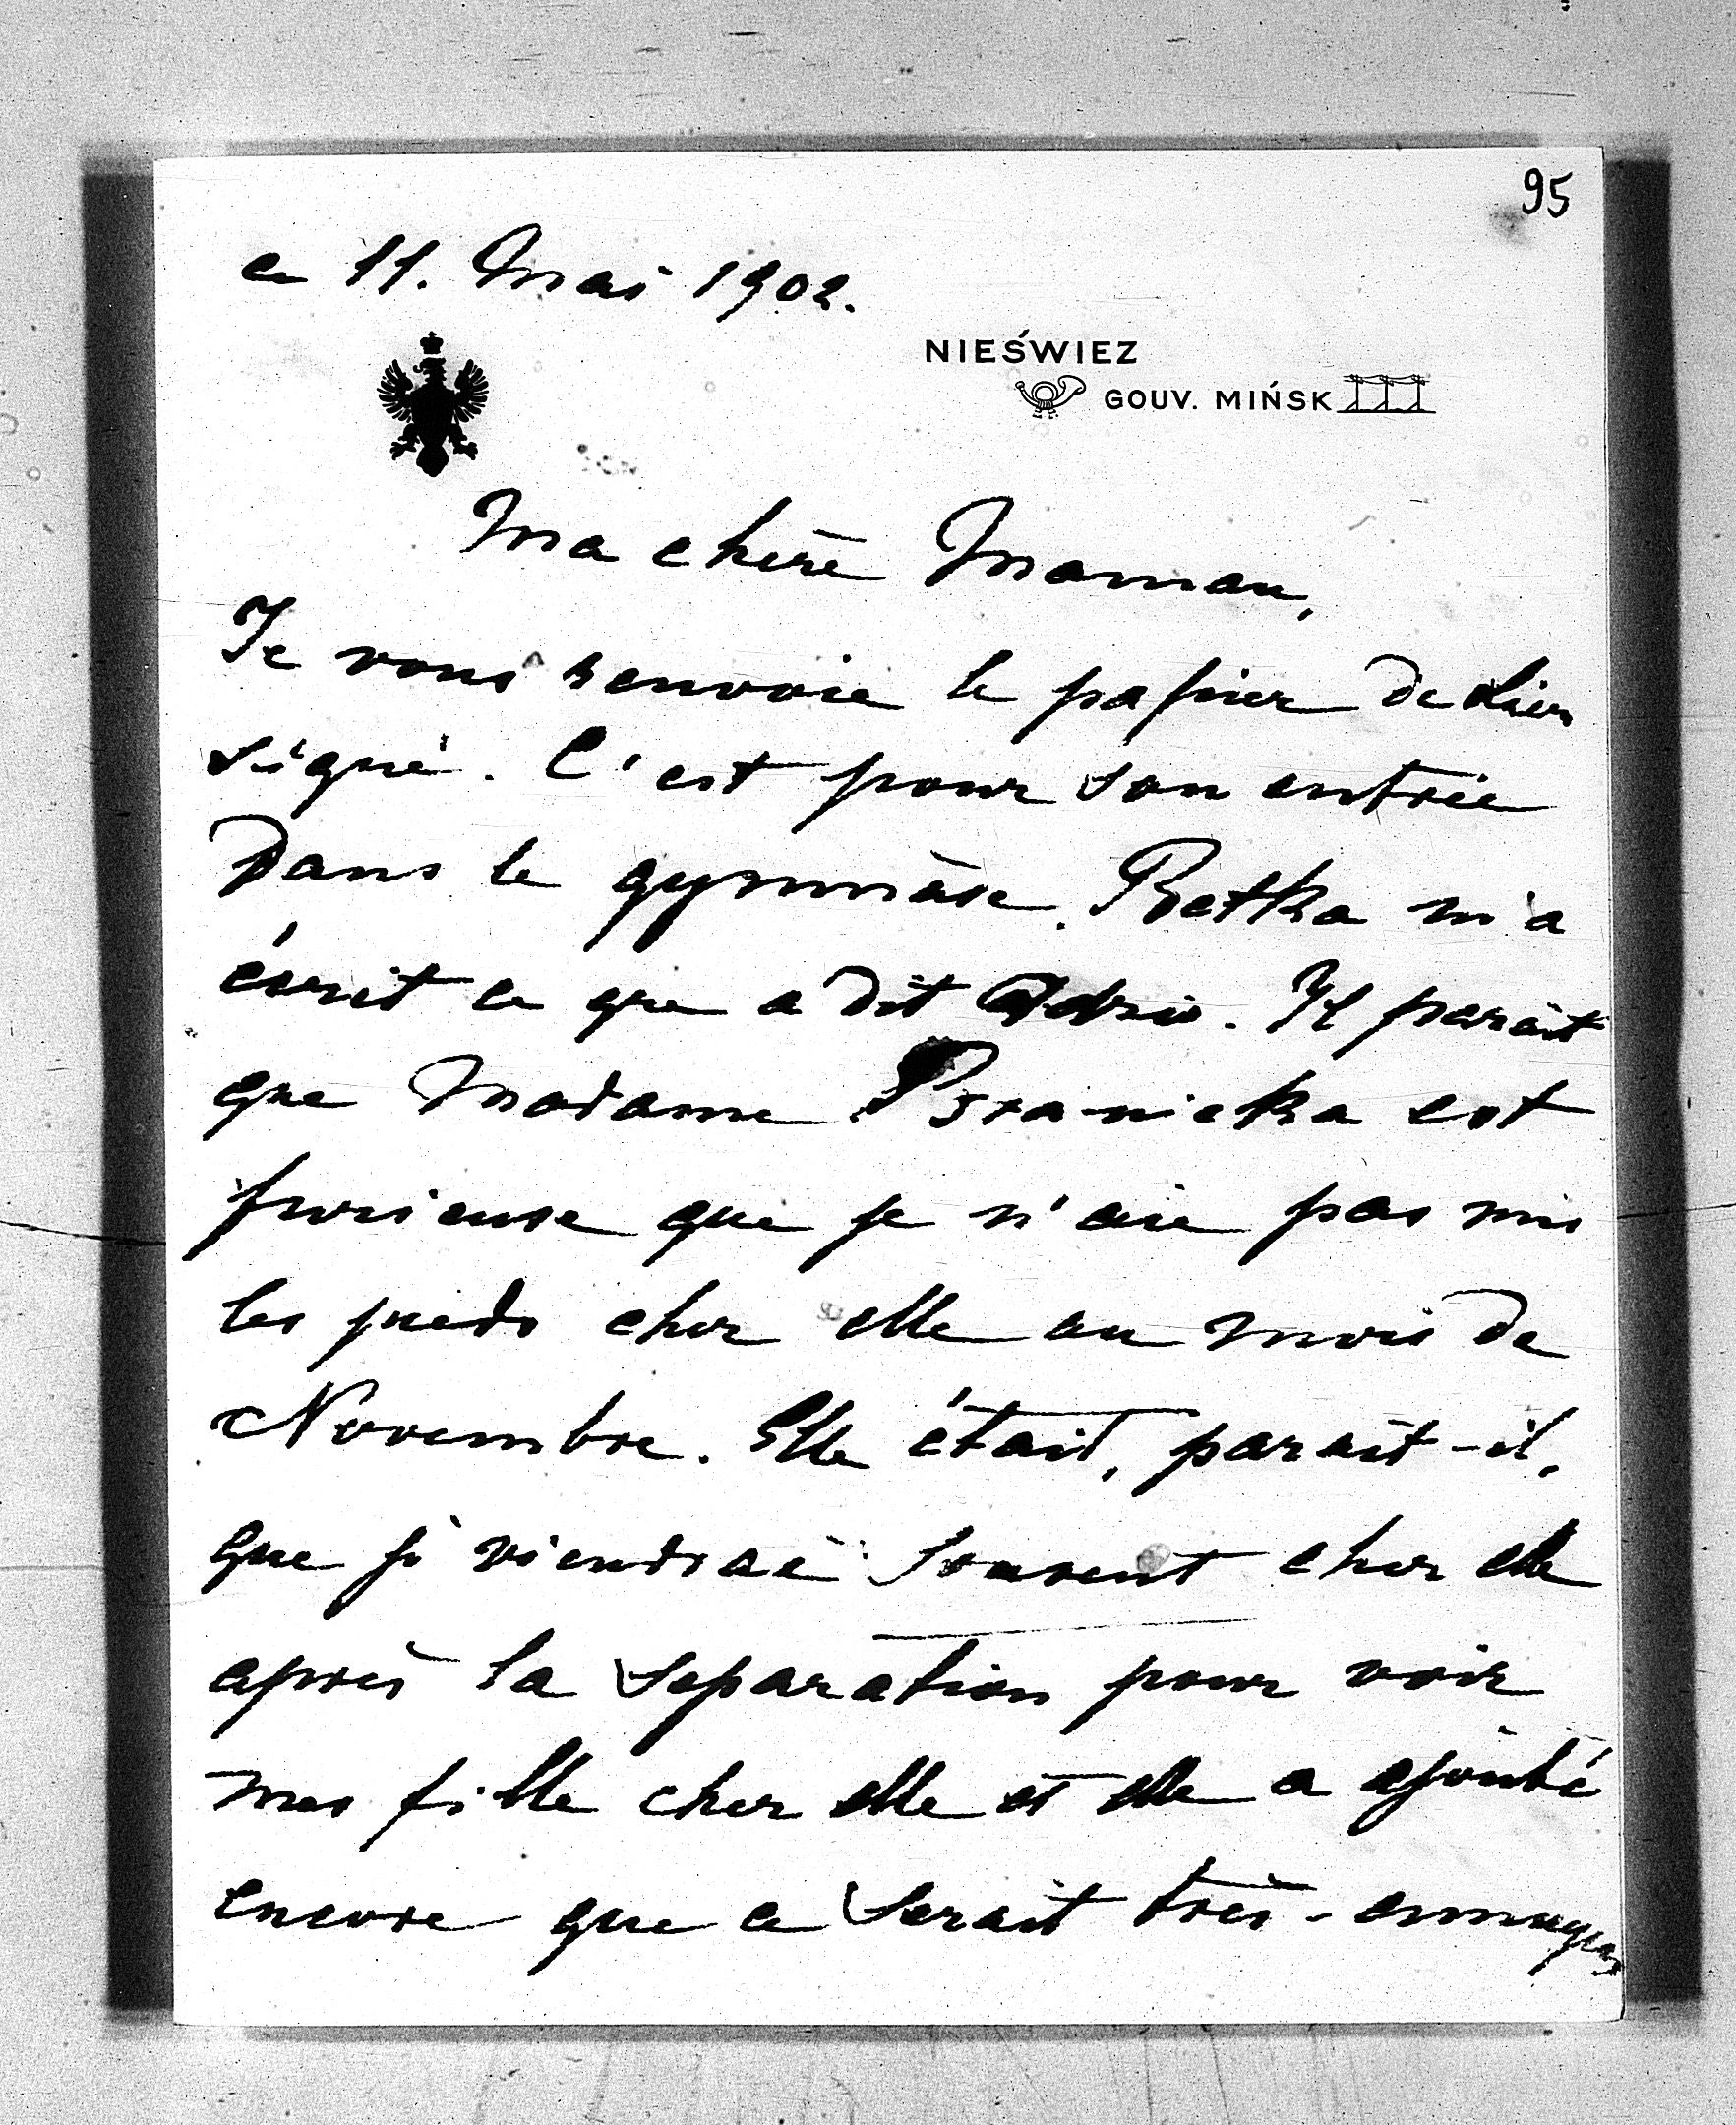 95
ce 11. Mai 1902.
NIEŚWIEZ
GOUV. MIŃSK
Ma chère Maman,
Je vous renvoie le papier de
signé. C'est pour son entrée
dans le gymnase. Betka m'a
écrit ce que a dit. Il paraît
que Madame Branicka est
furieuse que je n'aie pas mis
les pieds chez elle au mois de
Novembre. Elle était, parait-il,
que je viendrai souvent chez elle
après la séparation pour voir
mes fille chez elle et elle a ajouté
encore que ce serait très-ennuyeux